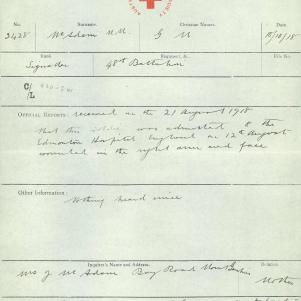 No. Surname. Christian Names.
2428 McAdam G M 15/10/18
Rank Regiment, &c. File No.
Signaller 48th Battalion
OFFICIAL REPORTS: received on the 21 August 1918
that this soldier was admitted to the
Edmonton Hospital England on 12th August
wounded in the right arm and face
Other Information:
Nothing heard since
Inquirer's Name and Address. Relation
Mrs J McAdam Bay Road Mount Mother